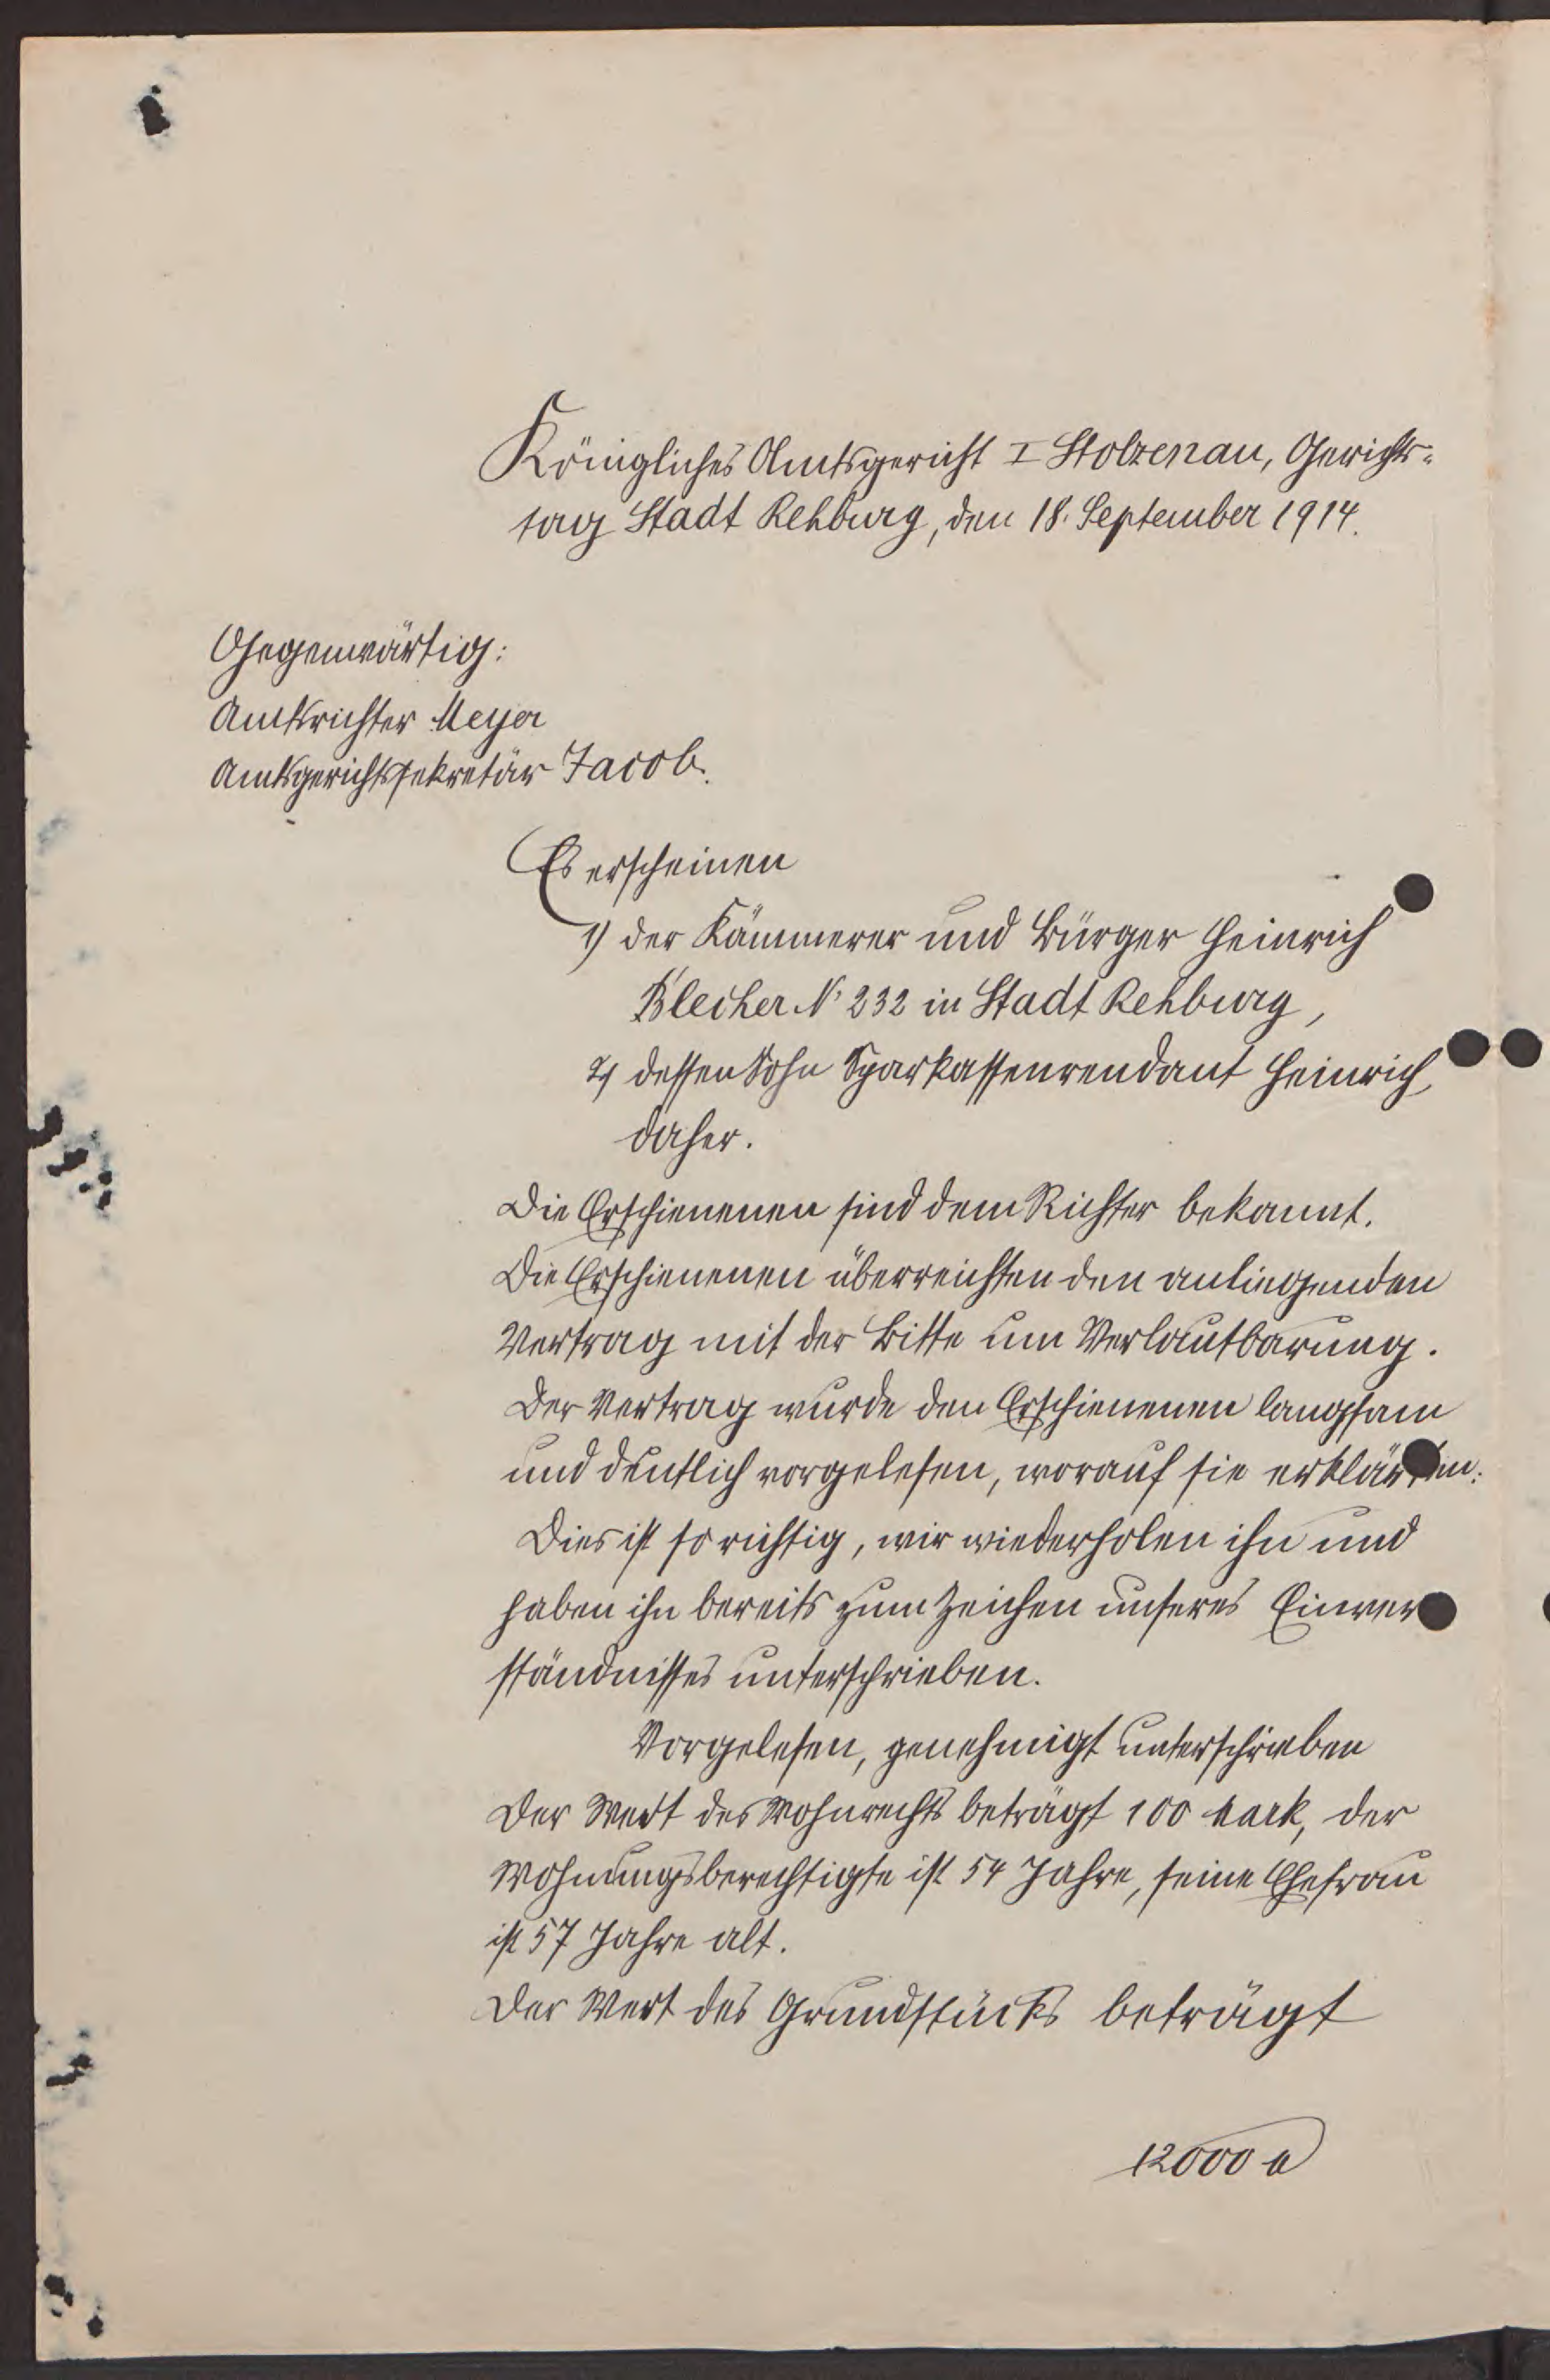 Königliches Amtsgericht I Stolzenau, Gerichts-
tag Stadt Rehburg, den 18. September 1914.
Gegenwärtig:
Amtsrichter Meyer
Amtsgerichtssekretär Jacob.
Es erscheinen
1) der Kämmerer und Bürger Heinrich
Blecher N. 232 in Stadt Rehburg,
2) dessen Sohn Sparkassenrendant Heinrich,
daher.
Die Erschienenen sind dem Richter bekannt.
Die Erschienenen überreichten den anliegenden
Vertrag mit der Bitte um Verlautbarung.
Der Vertrag wurde den Erschienenen langsam
und deutlich vorgelesen, worauf sie erklärten:
Dies ist so richtig, wir wiederholen ihn und
haben ihn bereits zum Zeichen unseres Einver
ständnisses unterschrieben.
Vorgelesen, genehmigt unterschrieben
Der Wert des Wohnrechts beträgt 100 Mark, der
Wohnungsberechtigte ist 54 Jahre, seine Ehefrau
ist 57 Jahre alt.
Der Wert des Grundstücks beträgt
12000 M